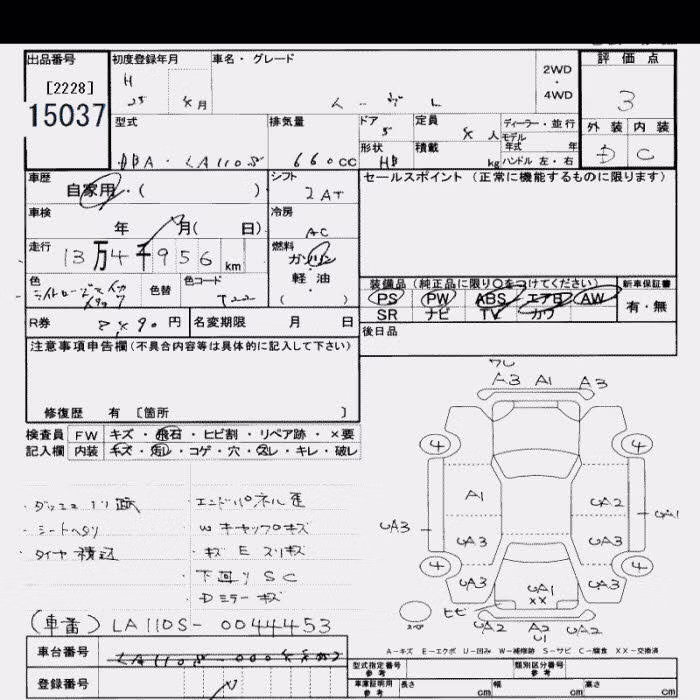 出品番号
[2228]
15037
初度登録年月
H
25 年 月
車名・グレード
ムーヴ L
2WD
・
4WD
評価点
3
外装 内装
D C
型式
DBA・LA110S
排気量
660 cc
ドア
5
形状
HB
定員
人
積載
kg
ディーラー・並行
モデル
年式 年
ハンドル 左・右
車歴
自家用・( )
シフト
2AT
セールスポイント(正常に機能するものに限ります)
車検
年 月( 日)
冷房
AC
走行
13万4千956 km
燃料
ガソリン
軽油
( )
色
色替
色コード
T22
装備品(純正品に限り○をつけてください)
PS PW ABS エアB AW
SR ナビ TV カワ
新車保証書
有・無
R券
円
名変期限 月 日
後日品
注意事項申告欄(不具合内容等は具体的に記入して下さい)
修復歴 有〔箇所 〕
検査員 FW キズ・飛石・ヒビ割・リペア跡・×要
記入欄 内装 キズ・汚レ・コゲ・穴・スレ・キレ・破レ
シートヘタリ
タイヤ積込
エンドパネル歪
Wキャップキズ
キズ E スリキズ
下回り SC
Dミラーキズ
ワレ
A3 A1 A3
4 4
A1 UA2
UA3 UA1
UA3 UA3
4 4
UA3 UA1 UA3
XX
ヒビ
UA2 A2 UA2
U1
(車番) LA110S-0044453
車台番号
登録番号
A−キズ E−エクボ U−凹み W−補修跡 S−サビ C−腐食 XX−交換済
型式指定番号
参考
類別区分番号
参考
車庫証明用
参考
長さ cm 幅 cm 高さ cm